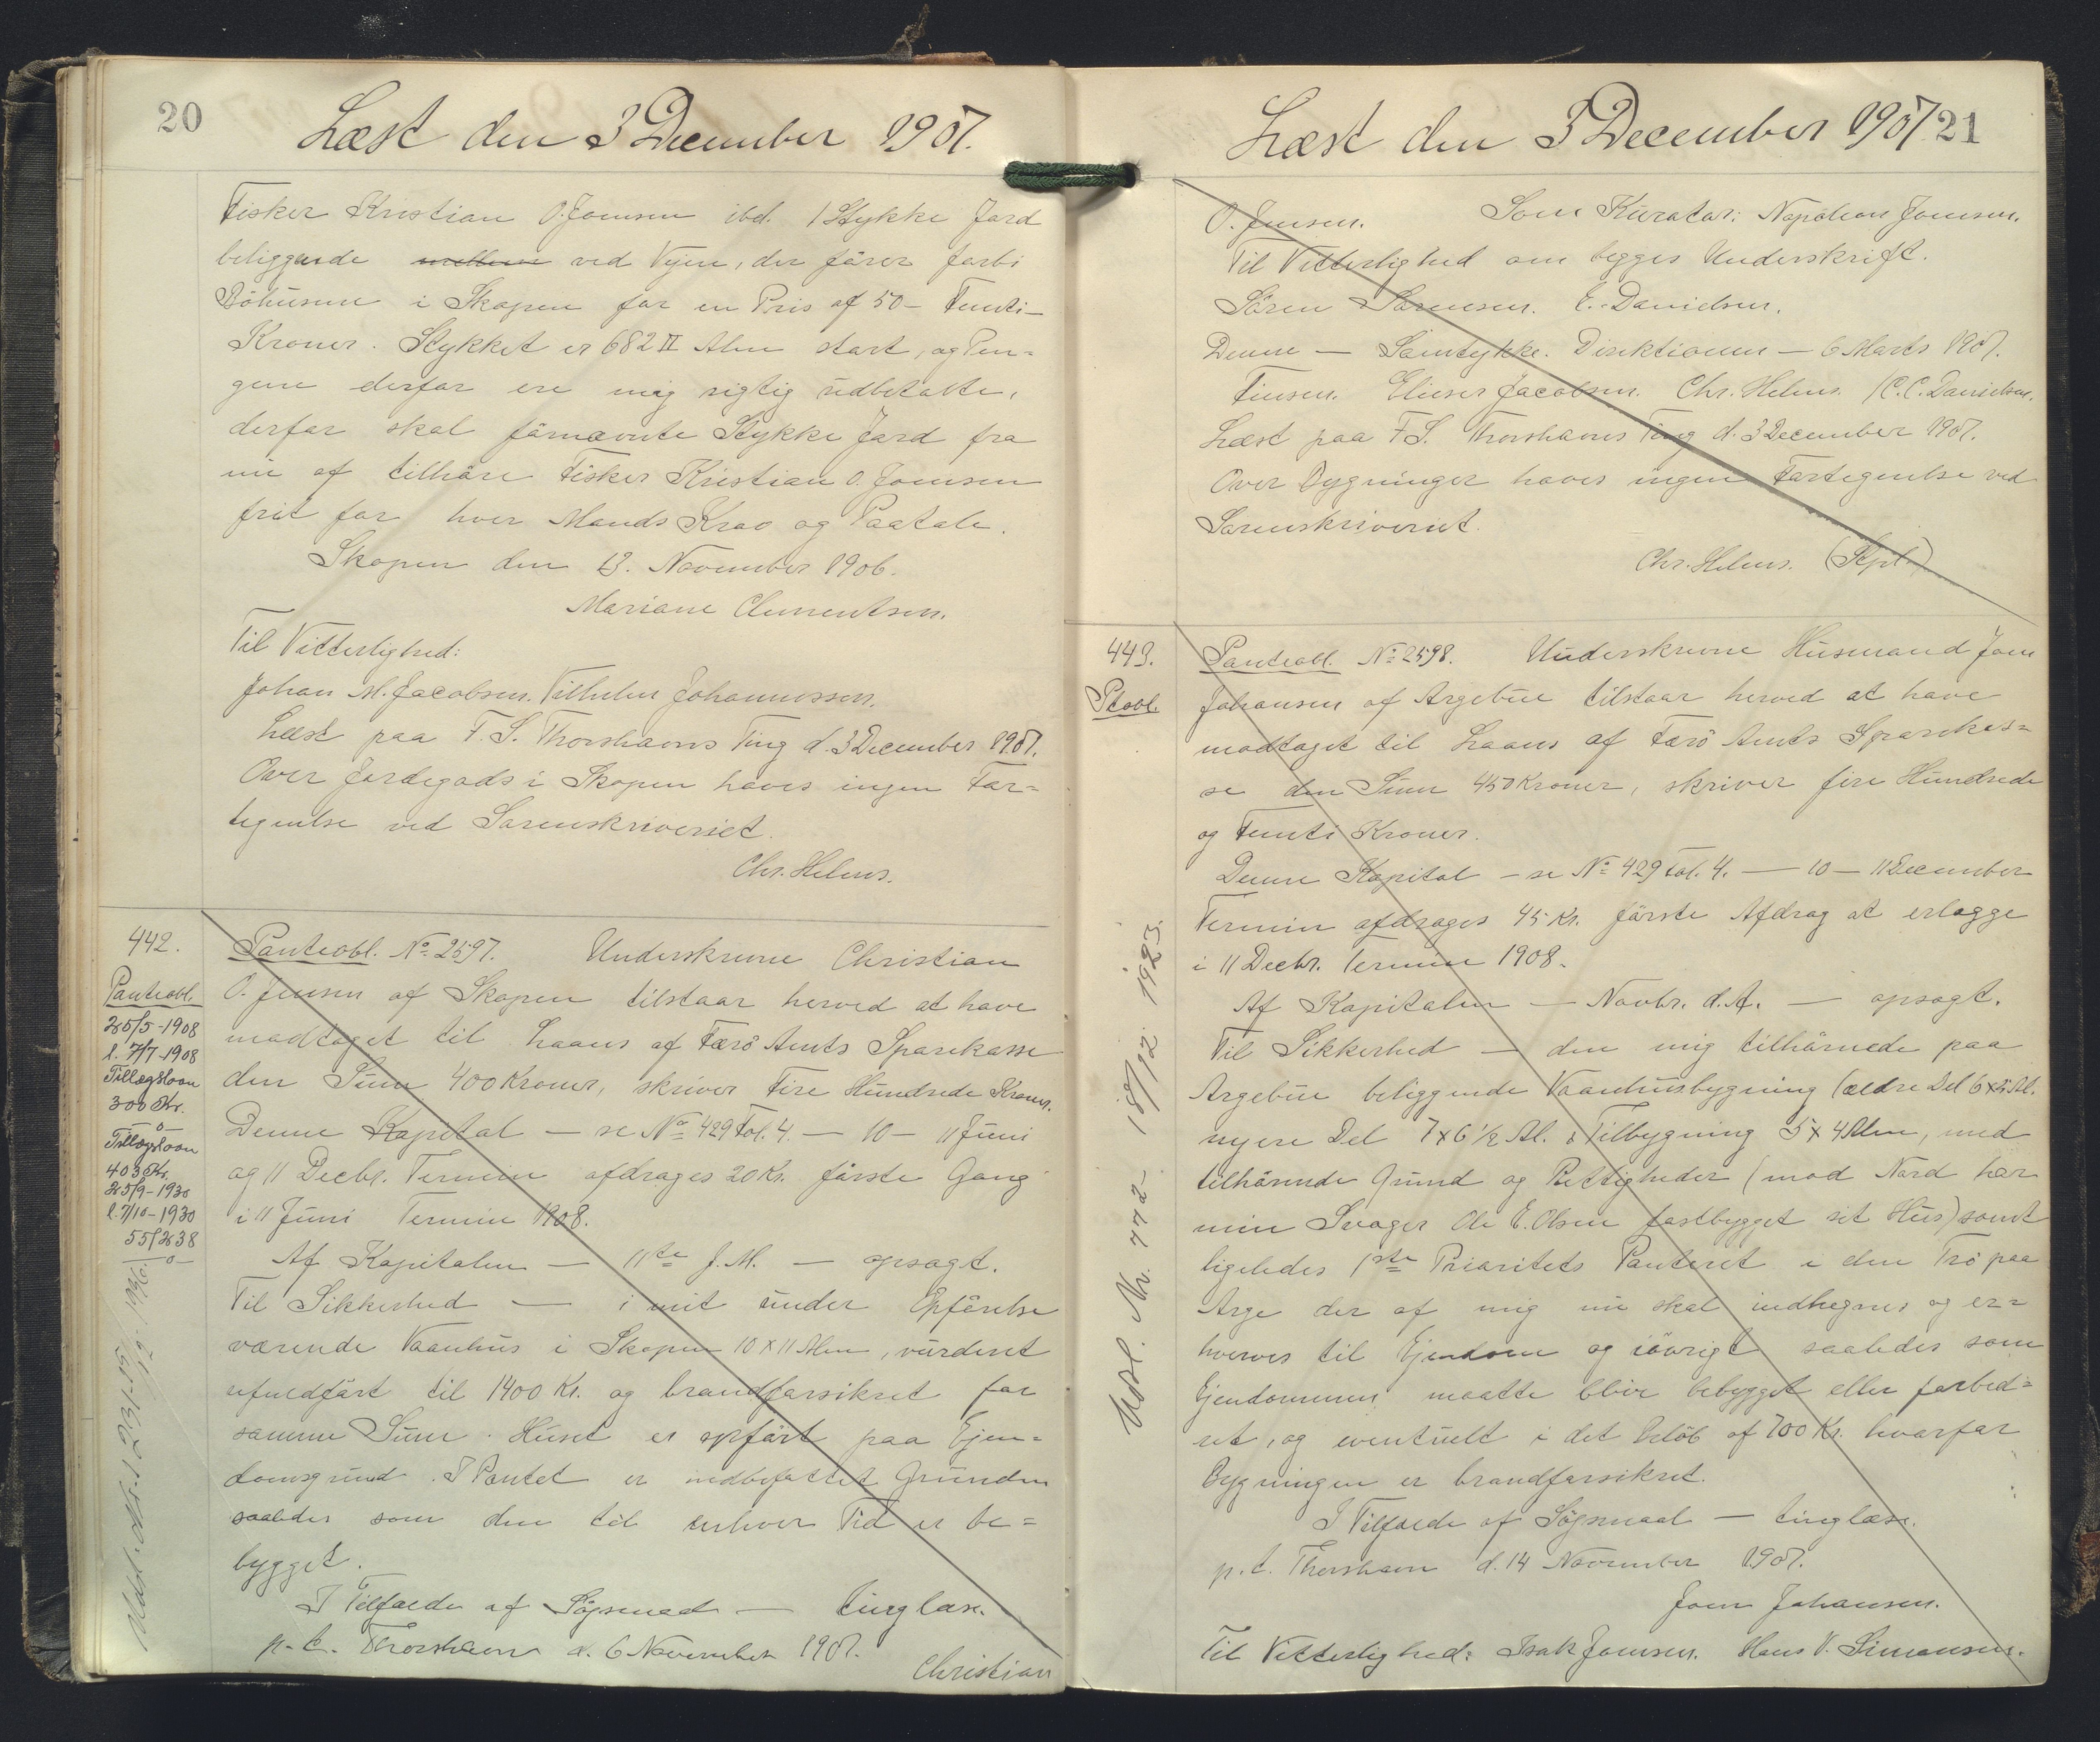 20
Læst den 3 December 1907.
Fisker Kristian O. Joensen ibd. 1 Stykke Jord
beliggende mellem ved Vejen, der fører forbi
Böhusene i Skopen for en Pris af 50 – Femti –
Kroner. Stykket er 682 □ Alen stort, og Pen=
gene derfor ere mig rigtig udbetalte,
derfor skal förnævnte Stykke Jord fra
nu af tilhöre Fisker Kristian O. Joensen
frit for hver Mands Krav og Paatale.
Skopen den 13. November 1906.
Mariane Clementsen.
Til Vitterlighed:
Johan M. Jacobsen. Vilhelm Johannessen.
Læst paa F. S. Thorshavns Ting d. 3 December 1907.
Over Jordegods i Skopen haves ingen For=
tegnelse ved Sorenskriveriet.
Chr. Helms.
442.
Panteobl.
25/5-1908
l. 7/7-1908
Tillægslaan
300 Kr.
-o-
Tillægslaan
403 Kr.
25/9-1930
l. 7/10-1930
55/238
-o-
Panteobl. No 2597. Underskrevne Christian
O. Jensen af Skopen tilstaar herved at have
modtaget til Laans af Færö Amts Sparekasse
den Sum 400 Kroner, skriver Fire Hundrede Kroner.
Denne Kapital – se No 429 Fol. 4. – 10 – 11 Juni
og 11 Decbr. Termin afdrages 20 Kr. förste Gang
i 11 Juni Termin 1908.
Af Kapitalen – 11te J. M. – opsagt.
Til Sikkerhed – i mit under Opförelse
værende Vaanhus i Skopen 10 x 11 Alen, vurderet
ufuldfört til 1400 Kr. og brandforsikret for
samme Sum. Huset er opfört paa Ejen=
domsgrund. I Pantet er indbefattet Grunden
saaledes som den til enhver Tid er be=
bygget.
I Tilfælde af Søgsmaal – tinglæse.
p. t. Thorshavn d. 6 November 1907.
Christian
Læst den 3 December 1907
21
O. Jensen. Som Kurator: Napoleon Joensen.
Til Vitterlighed om begges Underskrift.
Sören Sörensen. E. Danielsen.
Denne – Samtykke. Direktionen – 6 Marts 1907.
Finsen. Elieser Jacobsen. Chr. Helms. / C. C. Danielsen.
Læst paa F. S. Thorshavns Ting d. 3 December 1907.
Over Bygninger haves ingen Fortegnelse ved
Sorenskriveriet.
Chr. Helms. (Kpt.)
443.
Ptobl.
Udsl. Nr. 772 – 18/12 1923.
Panteobl. No 2598. Underskrevne Husmand Joen
Johansen af Argebue tilstaar herved at have
modtaget til Laans af Færö Amts Sparekas=
se den Sum 450 Kroner, skriver fire Hundrede
og Femti Kroner.
Denne Kapital – se No 429 Fol. 4. – 10 – 11 December
Termin afdrages 45 Kr. förste Afdrag at erlægge
i 11 Decbr. Termin 1908.
Af Kapitalen – Novbr. d. A. – opsagt.
Til Sikkerhed – den mig tilhörende paa
Argebue beliggende Vaanhusbygning (ældre Del 6 x 5 Al.
nyere Del 7 x 6 1/2 Al. & Tilbygning 5 x 4 Alen, med
tilhörende Grund og Rettigheder (mod Nord har
min Svoger Ole E. Olsen fastbygget sit Hus) samt
ligeledes 1ste Prioritets Panteret i den Trö paa
Arge der af mig nu skal indhegnes og er=
hverves til Ejendom og iövrigt saaledes som
Ejendommen maatte blive bebygget eller forbed=
ret, og eventuelt i det Belöb af 700 Kr. hvorfor
Bygningen er brandforsikret.
I Tilfælde af Sögsmaal – tinglæse.
p. t. Thorshavn d. 14 November 1907.
Joen Johansen.
Til Vitterlighed: Isak Joensen. Hans V. Simonsen.